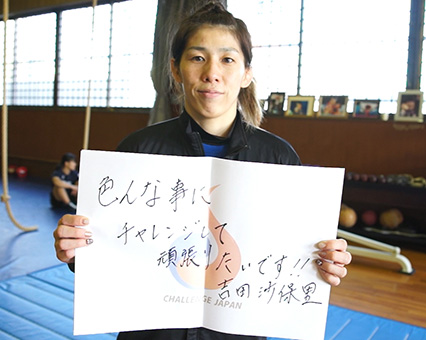 色んな事に
チャレンジして
頑張りたいです!!
吉田 沙保里
CHALLENGE JAPAN